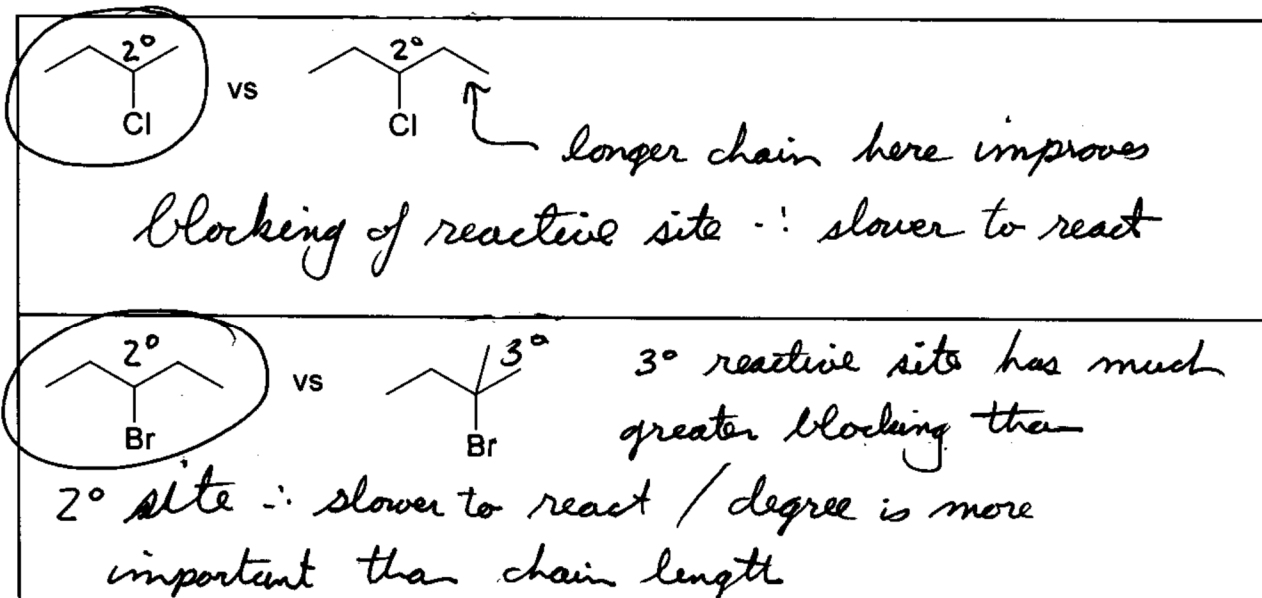 2° 2°
vs
Cl Cl
longer chain here improves
blocking of reactive site ∴ slower to react
2° 3° 3° reactive site has much
vs
Br Br greater blocking tha
2° site ∴ slower to react / degree is more
important tha chain length